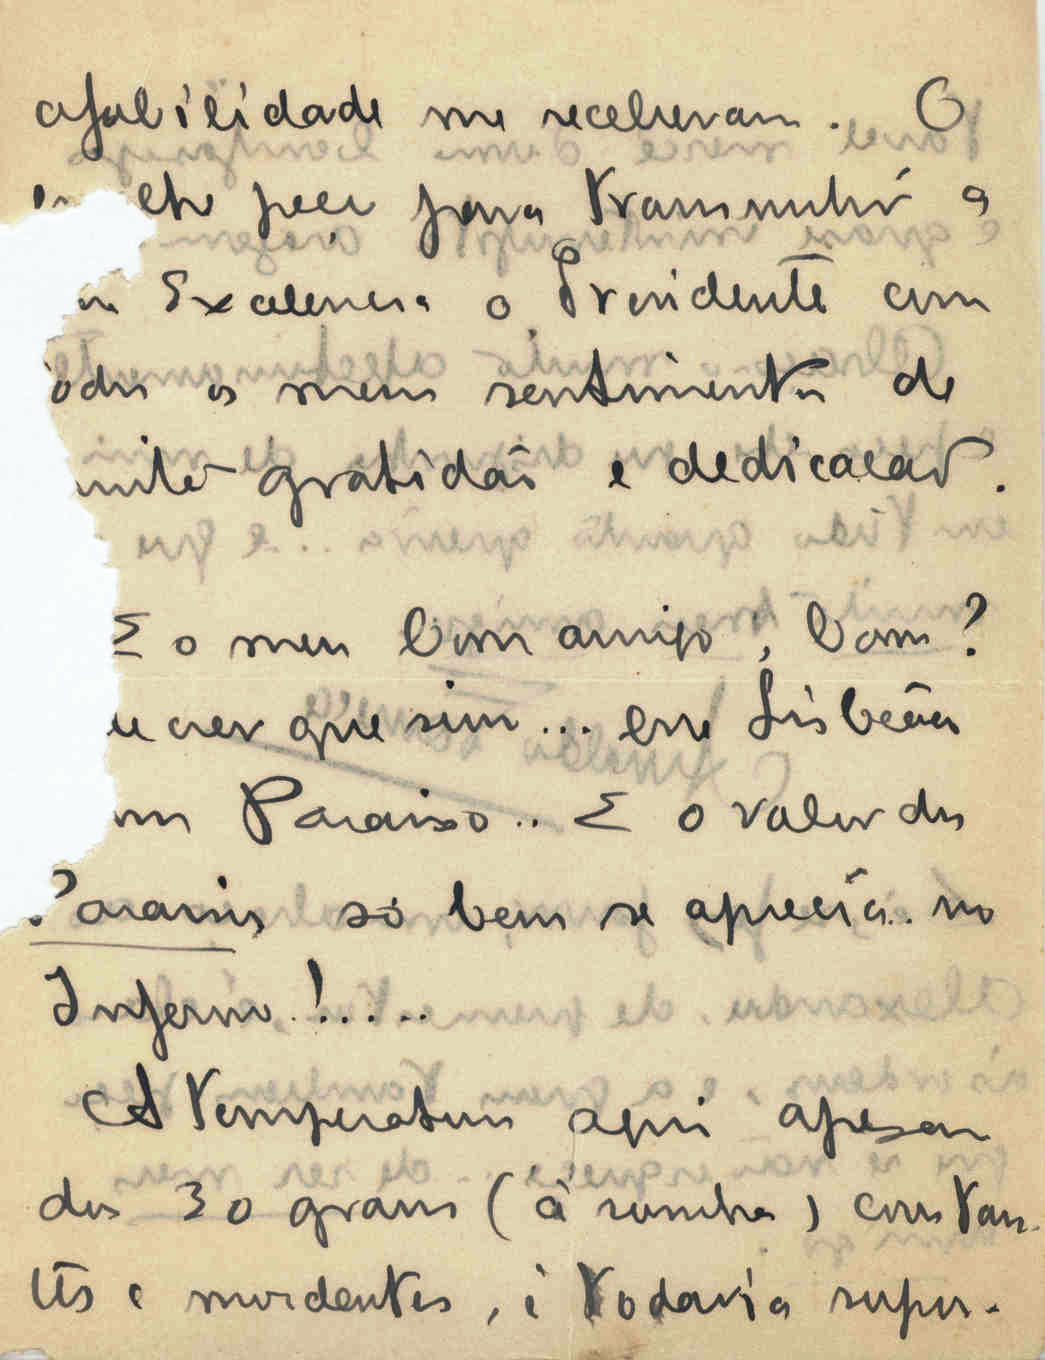 afabilidade me receberam. O
lhe peço para transmitir a
Excelencia o Presidente com
odos os meus sentimentos de
muito gratidão e dedicação.
E o meu bom amigo, bom?
crer que sim... esse Lisboa
um Paraiso.. E o valor dos
Paraisos só bem se aprecia.. no
Inferno!.....
A temperatura aqui apesar
dos 30 graus (à sombra) constan-
tes e mordentes, é todavia supor-